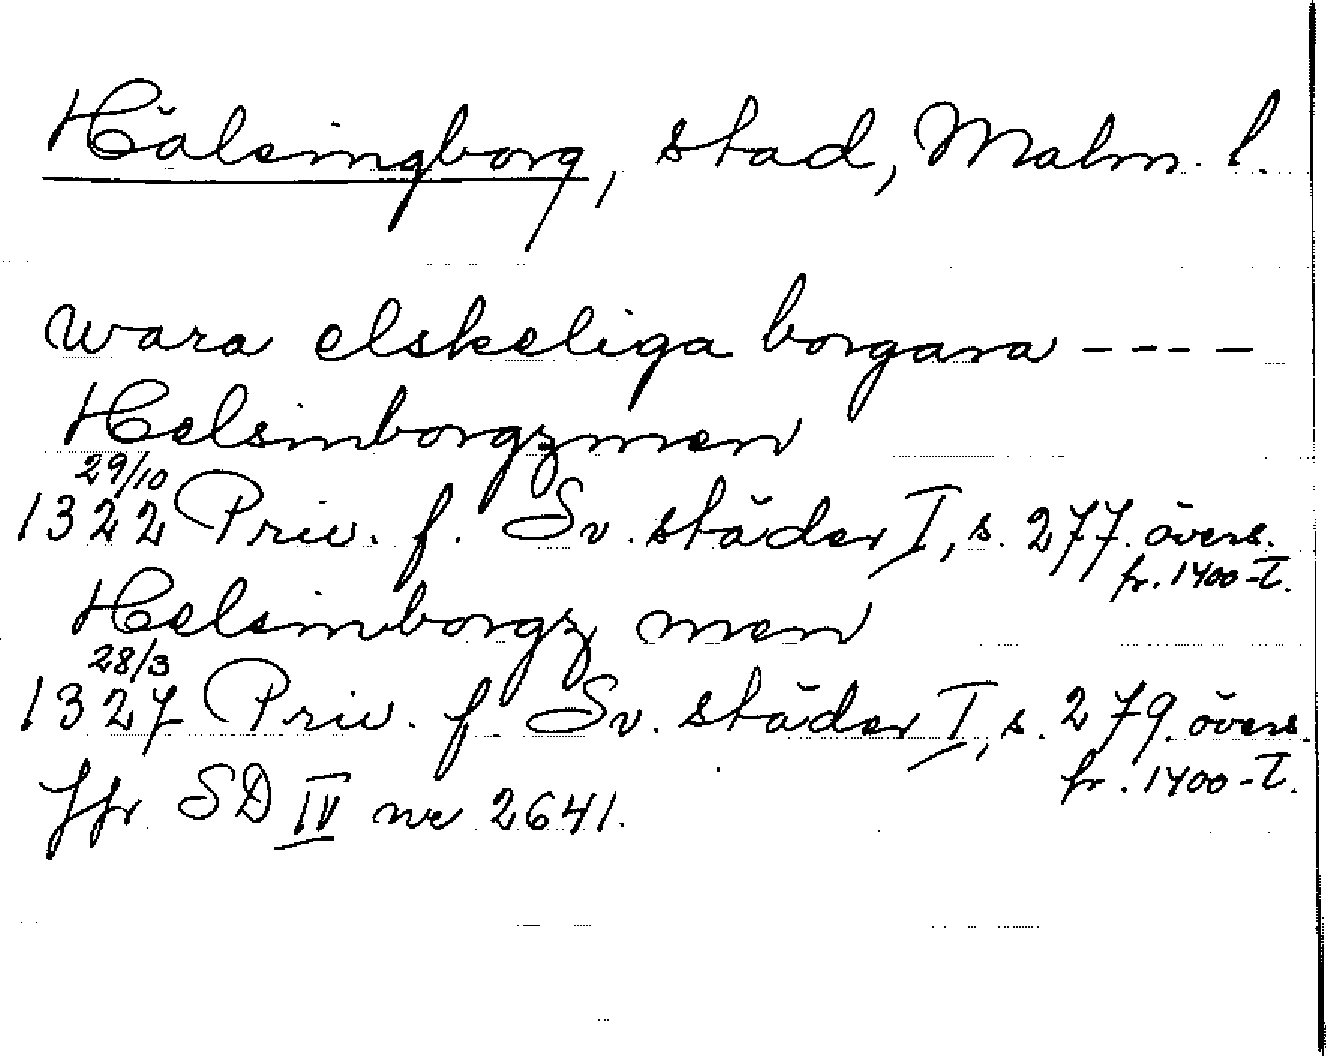 Hälsingborg, stad, Malm. l.
wara elskeliga borgara ----
Helsinborgzmen
29/10
1322 Priv. f. Sv. städer I, s. 277. övers.
fr. 1400-t.
Helsinborgz men
28/3
1327 Priv. f. Sv. städer I, s. 279. övers.
fr. 1400-t.
Jfr SD IV nr 2641.